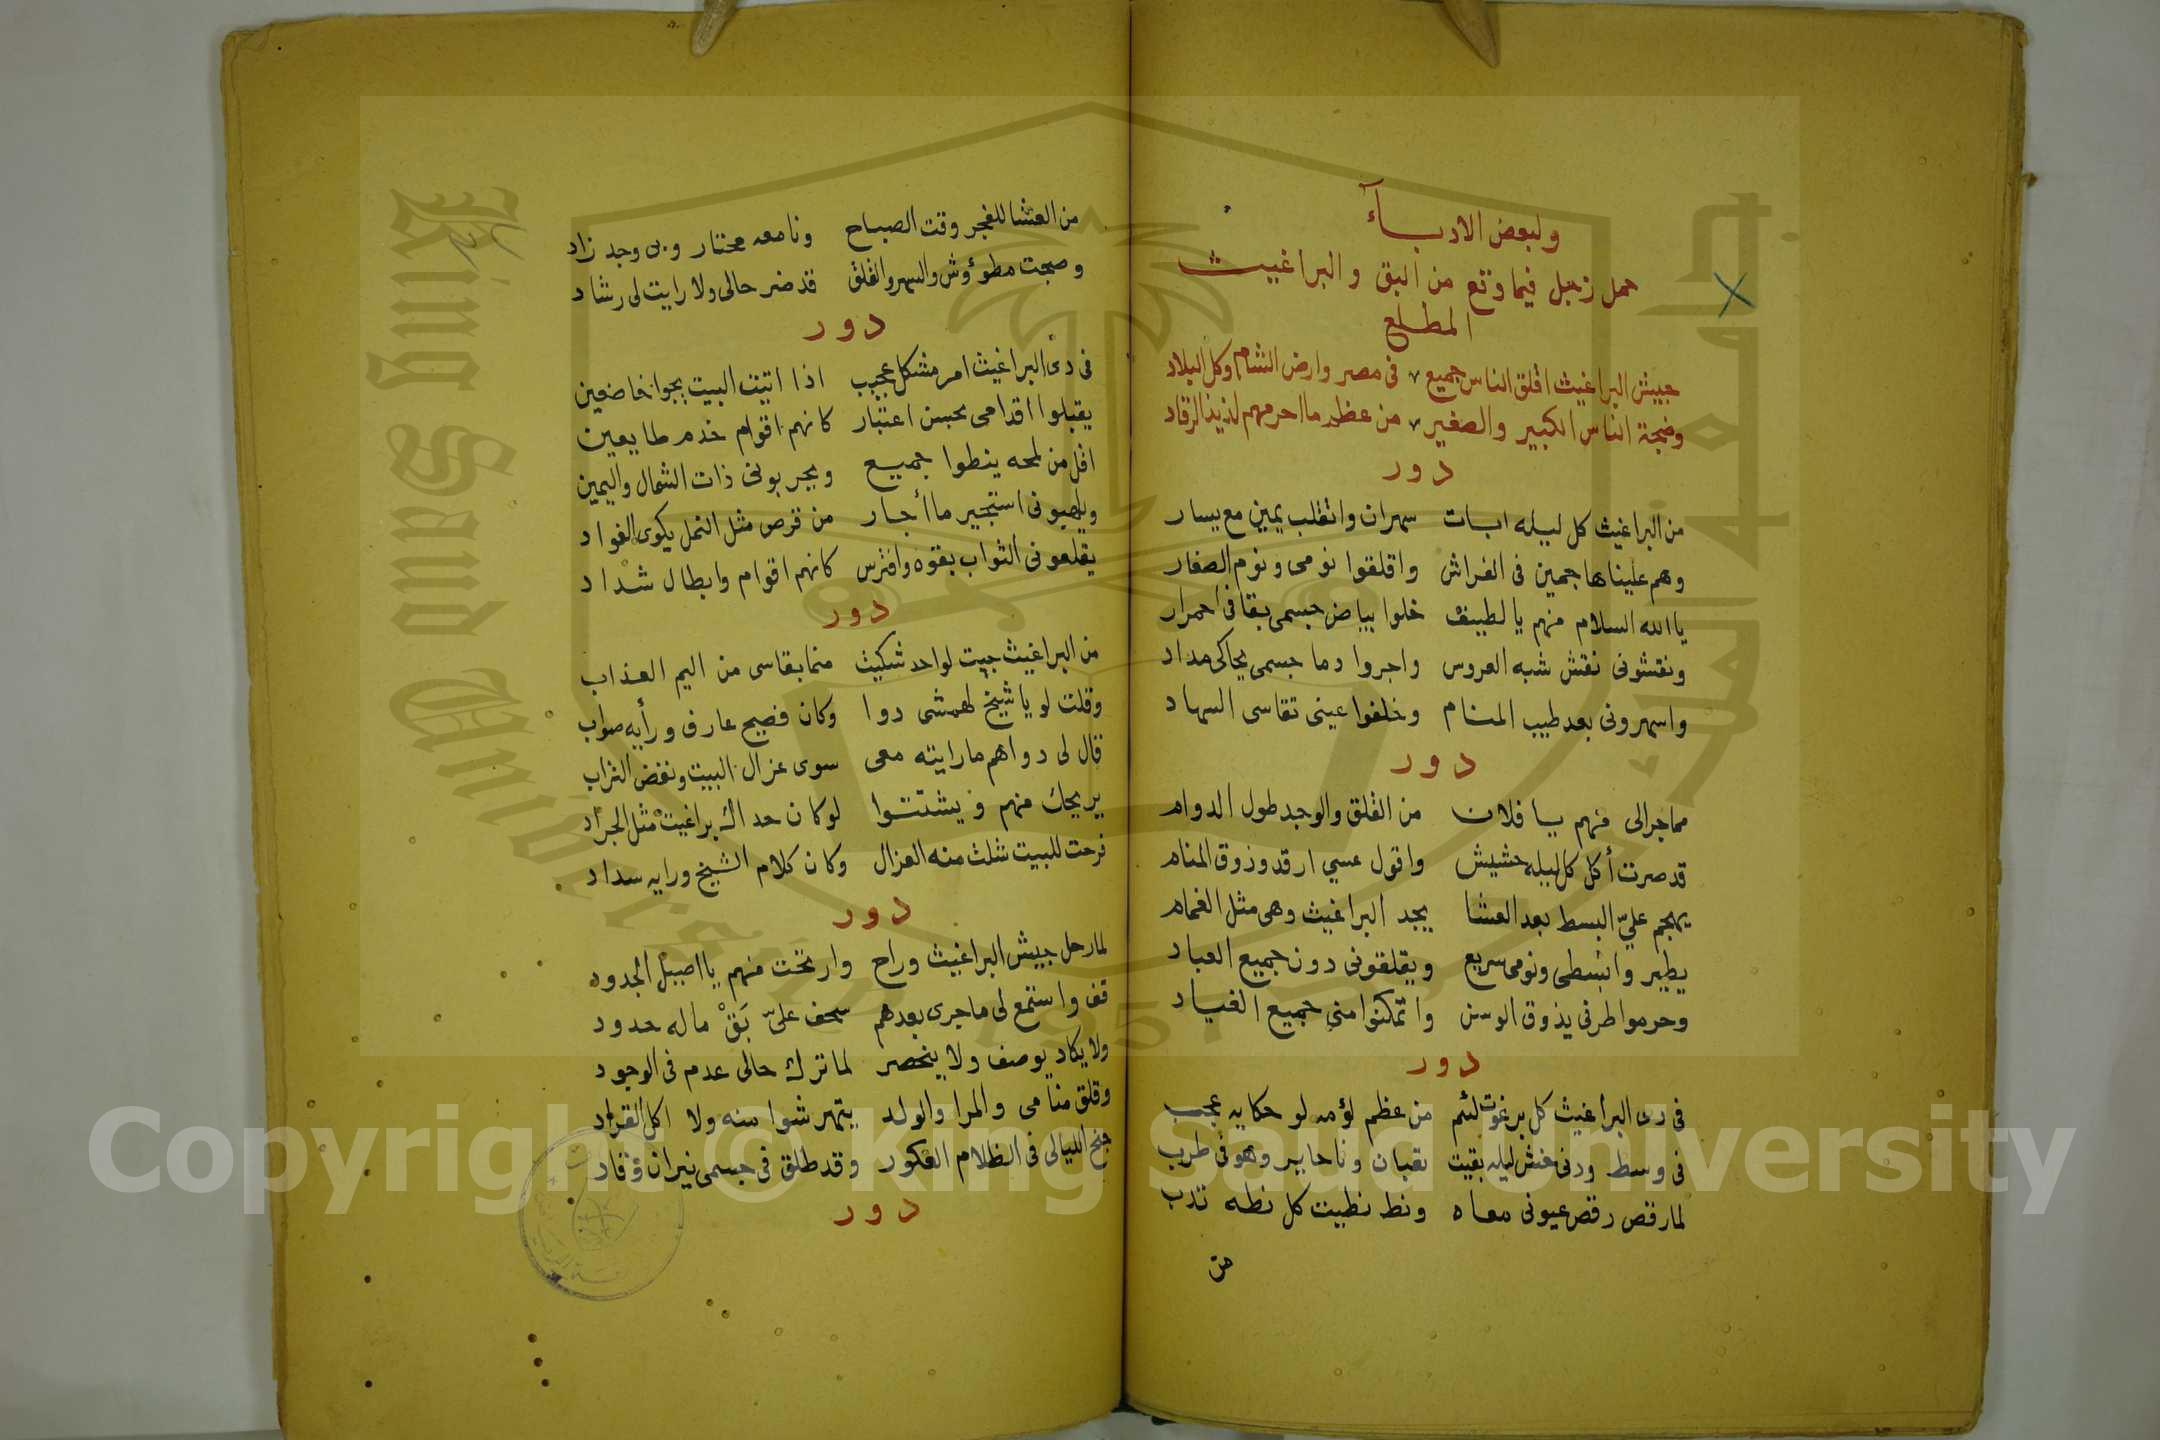 ولبعض الادبآء
حمل زجل فيما وقع من البق والبراغيث
المطلع
جيش البراغيث اقلق الناس جميع في مصر وارض الشام وكل البلاد
وضجة الناس الكبير والصغير من عظم ما احرمهم لذيذ الرقاد
دور
من البراغيث كل ليله ابات سهران واتقلب يمين مع يسار
وهم علينا هاجمين في الفراش واقلقوا نومى ونوم الصغار
يا الله السلام منهم يا لطيف خلوا بياض جسمى بقا في احمرار
ونقشونى نقش شبه العروس واجروا دما جسمى يحاكى مداد
واسهرونى بعد طيب المنام وخلفوا عينى تقاسى السهاد
دور
مما جرالى منهم يا فلان من القلق والوجد طول الدوام
قد صرت أكل كل ليله حشيش واقول عسي ارقد وزوق المنام
يهجم عليّ البسط بعد العشا يجد البراغيث وهى مثل الغمام
يطير وابسطى ونومى سريع ويقلقونى دون جميع العباد
وحرموا طرفى يذوق الوسن واتمكنوا منى جميع الفياد
دور
فى دى البراغيث كل برغوت لئم من عظم لؤمه لو حكايه عجب
فى وسط ودنى خش ليله بقيت تعبان وناحاير وهو فى طرب
لما رقص رقص عيونى معاه ونط نطيت كل نطه تدب
من
من العشا للفجر وقت الصباح ونا معه محتار وبى وجد زاد
وصبحت مطوؤش والسهر والقلق قد ضر حالى ولا رايت لى رشاد
دور
فى دى البراغيث امر مشكل عجيب اذا اتيت البيت يجوا خاضعين
يقبلوا اقدامى بحسن اعتبار كانهم اقوام خدم طايعين
اقل من لمحه ينطوا جميع ويجربونى ذات الشمال واليمين
ويلهبونى استجير ما أجار من قرص مثل النمل يكوى الفواد
يقلعونى الثواب بقوه وافترس كانهم اقوام وابطال شداد
دور
من البراغيث جيت لواحد شكيت منما بقاسى من اليم العذاب
وقلت لو يا شيخ لهمشى دوا وكان فصيح عارف ورأيه صواب
قال لى دواهم مارايته معى سوى عزال البيت ونفض التراب
يريحك منهم ويشتتوا لو كان حداك براغيت مثل الجراد
فرحت للبيت شلت منه العزال وكان كلام الشيخ ورايه سداد
دور
لما رحل جيش البراغيث وراح وارتحت منهم يا اصيل الجدود
قف واستمع لى ما جرى بعدهم سحف عليّ بَقْ ماله حدود
ولا يكاد يوصف ولا ينحصر لما ترك حالى عدم فى الوجود
وقلق منامى والمرا والولد يتهرشوا منه ولا اكل القراد
جنح الليالى فى الظلام العكور وقد طلق فى جسمى نيران وقاد
دور
Copyright © King Saud University
King Saud University
1957